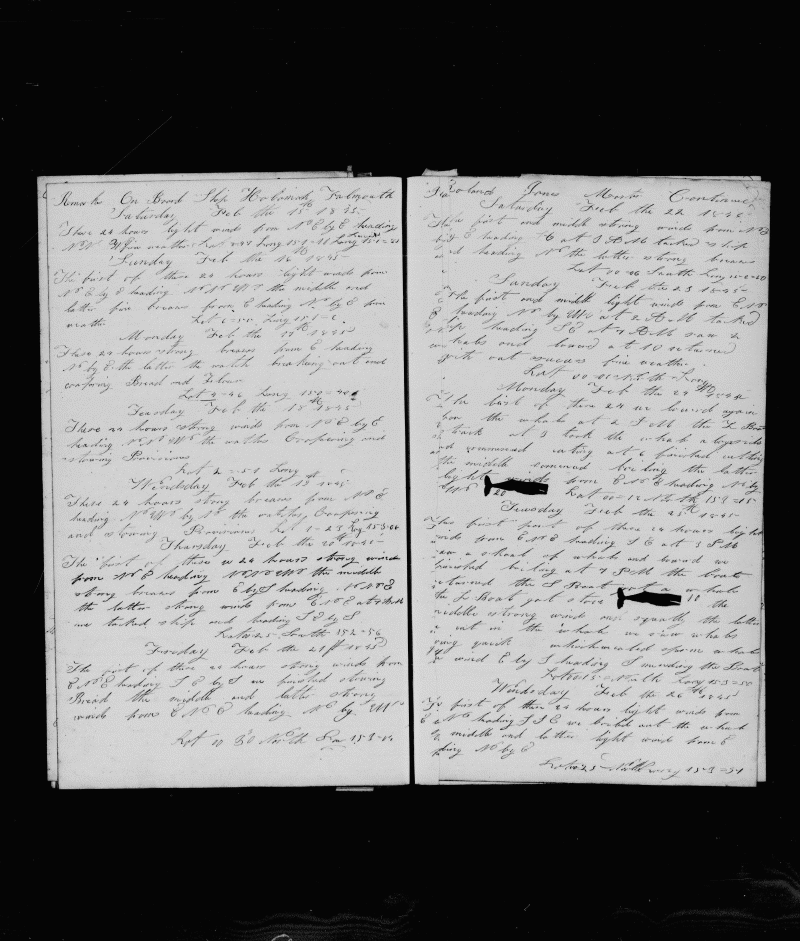 Remarks On Board Ship Hobomok Falmouth
Saturday Feb the 15th 1845
These 24 hours light winds from NE by E heading
Sunday Feb the 16th 1845
The first of these 24 hours light winds from
NE by E heading NNW the middle and
latter fine breezes from E heading N by E fine
weather
Monday Feb the 17th 1845
These 24 hours strong breezes from E heading
N by E the latter the watch breaking out and
coopering Bread and
Lat 4=46 Long 150=40
Tuesday Feb the 18th 1845
These 24 hours strong winds from NE by E
heading NNW the watches Coopering and
stowing Provisions
Lat 2=51 Long
Wednsday Feb the 19 1845
These 24 hours strong breezes from NE
heading NNW by N the watches Coopering
and stowing Provisions Lat 1=23 Long 153=04
Thursday Feb the 20th 1845
The first of these 24 hours strong winds
from NE heading NNW the middle
strong breezes from E by S heading NNE
the latter strong winds from ENE at 7 AM
we tacked ship and heading SE by S
Lat 00 25 South 152=56
Friday Feb the 21st 1845
The first of these 24 hours strong winds from
ENE heading SE by S we finished stowing
Bread the middle and latter strong
winds from ENE heading N by W
Lat 00 30 North Lon 153=
Roland Jones Month Continued
Saturday Feb the 22 1845
The first and middle strong winds from NE
by E heading at 3 PM tacked ship
and heading N the latter strong breezes
Lat 00=06 South Long
Sunday Feb the 23 1845
The first and middle light winds from ENE
heading N by W at 2 AM tacked
ship heading SE at 7 AM saw
whales and lowered at 10 returned
with out success fine weather
Monday Feb the 24th 1845
The first of these 24 we lowered again
for the whales at 2 PM the Boat
struck at 3 took the whale alongside
and commenced cutting at 6 finished cutting
the middle commenced boiling the latter
light winds from ENE heading N by
20 Lat 00=12 North 153=15
Tuesday Feb the 25th 1845
The first part of these 24 hours light
winds from ENE heading SE at 3 PM
saw a shoal of whales and lowered we
finished boiling at 7 PM the boats
returned the S Boat got a whale
the L Boat got stove 10 the
middle strong winds and squally the latter
cut in the whale we saw whales
going quick
wind E by S heading S mending the Boat
Wednsday Feb the 26th 1845
The first of these 24 hours light winds from
ENE heading SSE we boiled out the whale
the middle and latter light winds from E
heading N by E
North Long 153=51